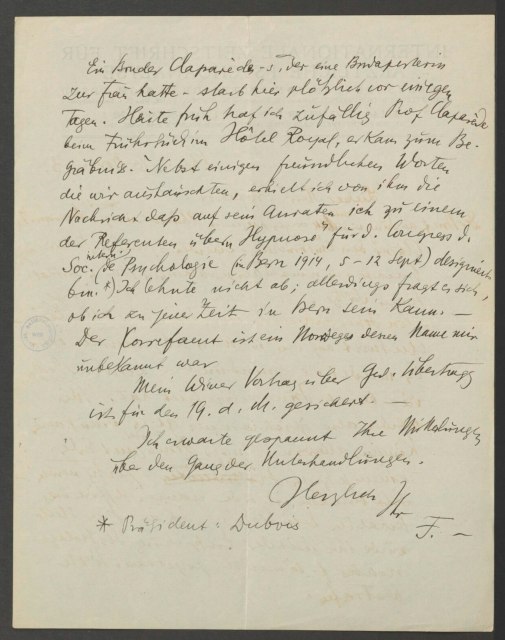 Ein Bruder Claparède-s, der eine Budapesterin
zur Frau hatte – starb hier plötzlich vor einigen
Tagen. Heute früh traf ich zufällig Prof. Claparède
beim Frühstück im Hôtel Royal, er kam zum Be-
gräbnis. Nebst einigen freundlichen Worten
die wir austauschten, erhielt ich von ihm die
Nachricht daß auf sein Anraten ich zu einem
der Referenten übern „Hypnose" für d. Congress d.
Soc. intern. de Psychologie (in Bern 1914, 5–12 Sept) designiert
bin.*) Ich lehnte nicht ab; allerdings fragt es sich,
ob ich zu jener Zeit in Bern sein kann. –
Der Korreferent ist ein Norweger dessen Name mir
unbekannt war
Mein Wiener Vortrag über Ged. Übertragg
ist für den 19. d. M. gesichert –
Ich erwarte gespannt Ihre Mitteilungen
über den Gang der Unterhandlungen.
Herzlich Ihr
F. –
* Präsident: Dubois